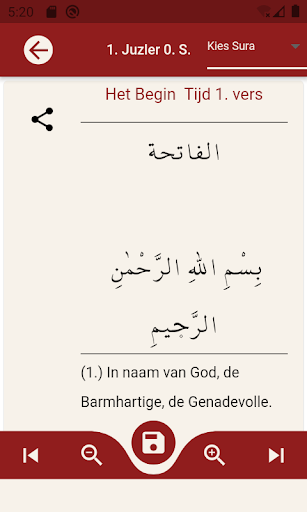 5:20
1. Juzler 0. S.
Kies Sura
Het Begin Tijd 1. vers
الفاتحة
بِسْمِ اللهِ الرَّحْمٰنِ
الرَّحٖيمِ
(1.) In naam van God, de
Barmhartige, de Genadevolle.